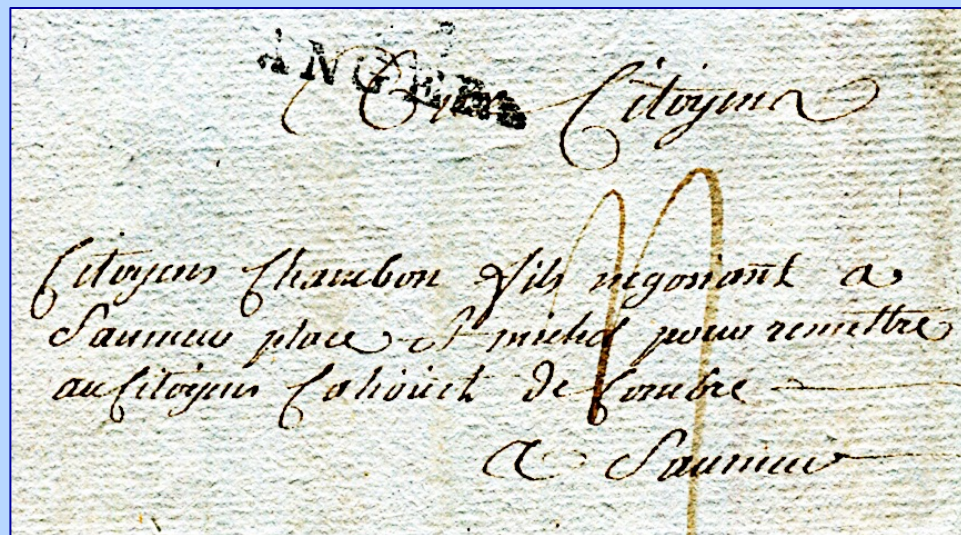 ANGERS
Citoyen
Citoyens Chambon fils negosiant a
Saumur place St michel pour remettre
au Citoyens Cahouet de Combre
a Saumur